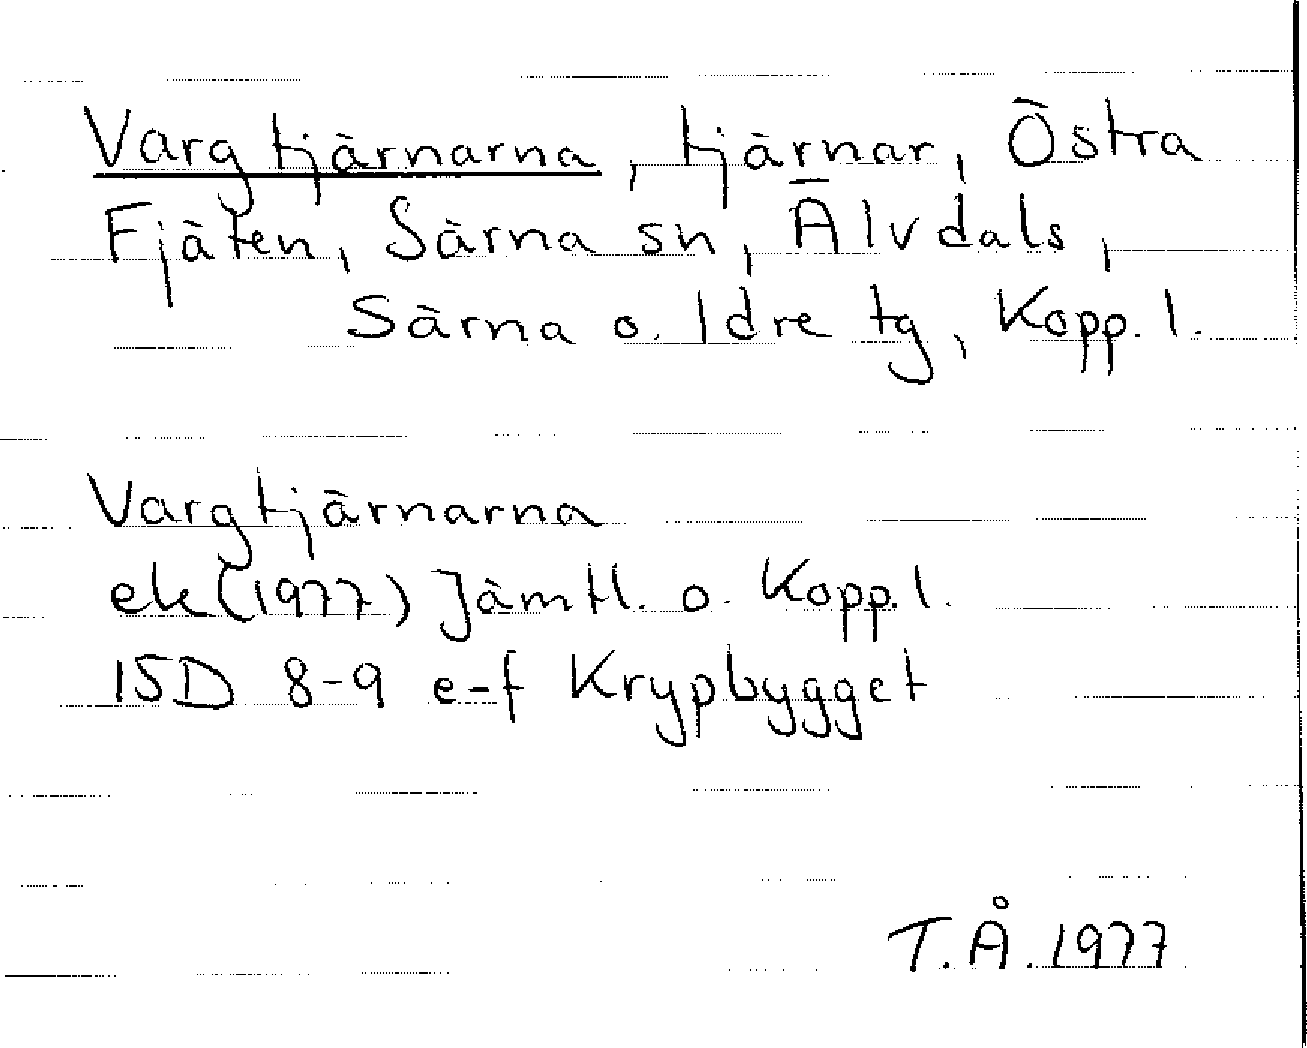 Vargtjärnarna, tjärnar, Östra
Fjäten, Särna sn, Älvdals,
Särna o. Idre tg, Kopp. l.
Vargtjärnarna
ek (1977) Jämtl. o. Kopp. l.
15D 8-9 e-f Krypbygget
T.Å. 1977